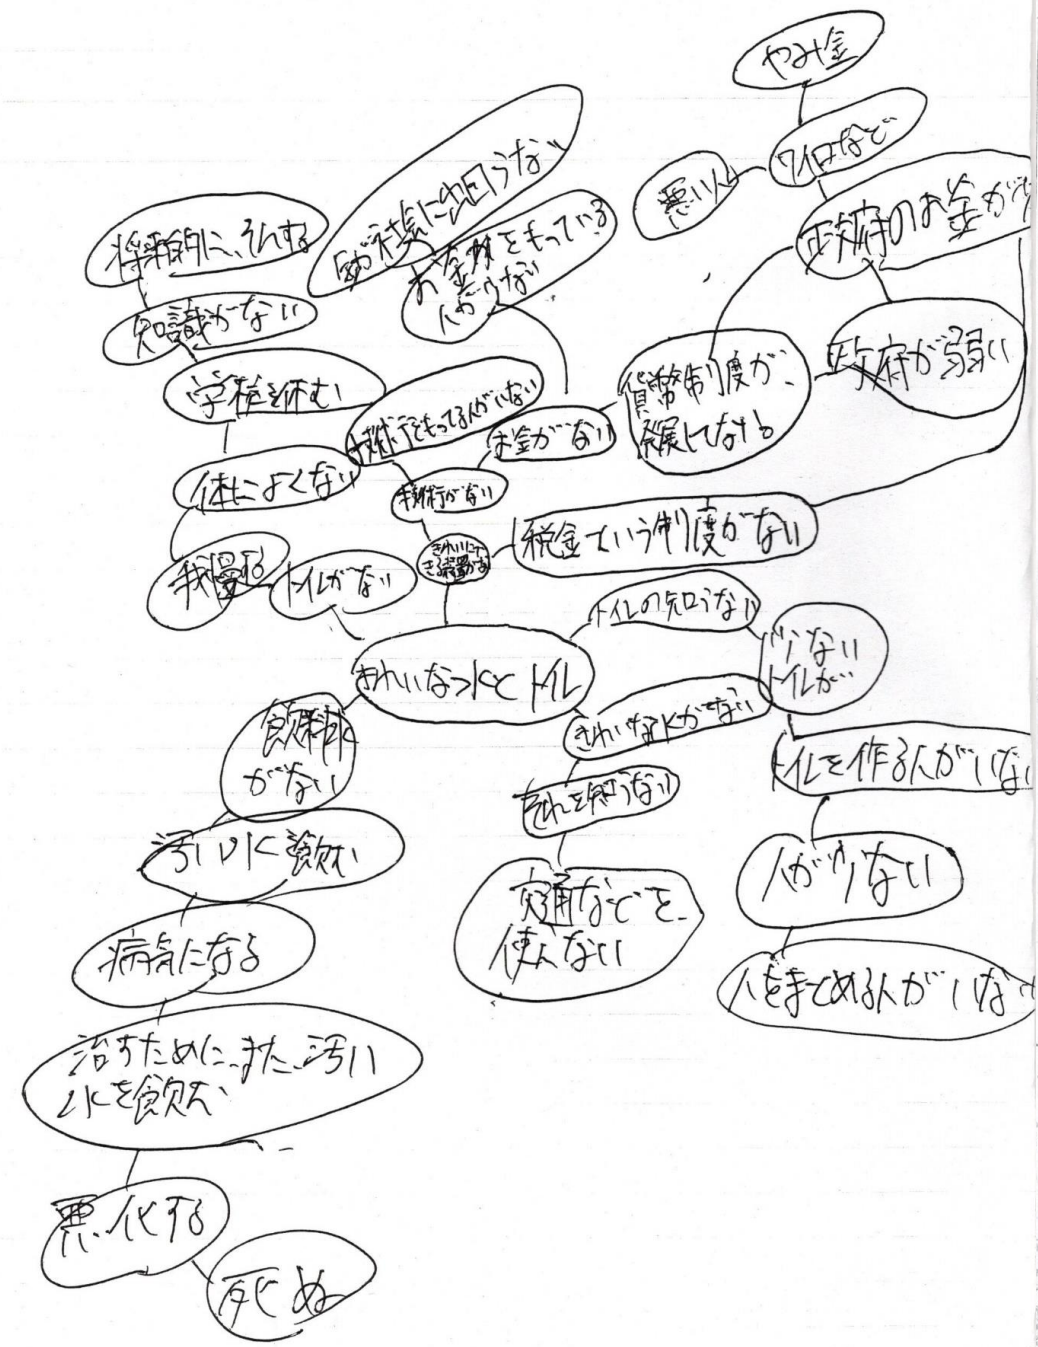 やみ金
ワイロなど
悪い人
政府のお金が少
政府が弱い
貨幣制度が、
発展してない。
お金がない
お金をもっている
人が少ない
将来的に、そんする
知識がない
学校を休む
体によくない
我慢する
トイレがない
技術をもってる人がいない
技術がない
きれいにで
きる装置がな
税金という制度がない
きれいな水とトイレ
トイレの知らない
少ない
トイレが
きれいな水がない
トイレを作る人がいない
人が少ない
人をまとめる人がいな
それを知らない
交通などを、
使えない
飲料水
がない
汚い水飲む
病気になる
治すために、また、汚い
水を飲む
悪化する
死ぬ